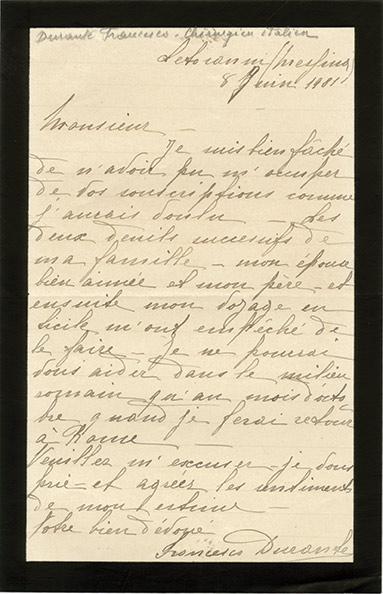 Durante Francesco - Chirurgien italien
Letojanni (Messina)
8 Juin 1901
Monsieur -
Je suis bien fâché
de n'avoir pu m'occuper
de vos souscriptions comme
j'aurais voulu - Les
deux deuils succesifs de
ma famille - mon épouse
bien aimée et mon père - et
ensuite mon voyage en
Sicile m'ont empêché de
le faire - Je ne pourrai
vous aider dans le milieu
romain qu'au mois d'octo
bre quand je ferai retour
à Rome -
Veuillez m'excuser - je vous
prie - et agréer les sentiments
de mon estime -
Votre bien dévoué
Francesco Durante